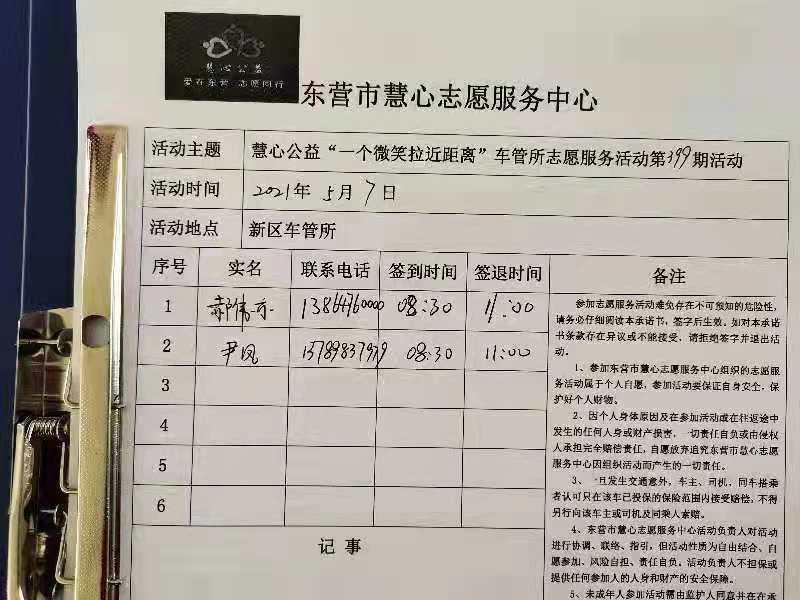 慧心公益
爱在东营 志愿同行
东营市慧心志愿服务中心
活动主题 慧心公益“一个微笑拉近距离”车管所志愿服务活动第399期活动
活动时间 2021年 5月 7日
活动地点 新区车管所
序号 实名 联系电话 签到时间 签退时间 备注
1 13864760000 08:30 11:00
2 尹凤 08:30 11:00
3
4
5
6
参加志愿服务活动难免存在不可预知的危险性，
请务必仔细阅读本承诺书，签字后生效。如对本承诺
书条款存在异议或不能接受，请拒绝签字并退出活
动。
1、参加东营市慧心志愿服务中心组织的志愿服
务活动属于个人自愿，参加活动要保证自身安全，保
护好个人财物。
2、因个人身体原因及在参加活动或在往返途中
发生的任何人身或财产损害，一切责任自负或由侵权
人承担完全赔偿责任，自愿放弃追究东营市慧心志愿
服务中心因组织活动而产生的一切责任。
3、一旦发生交通意外，车主、司机，同车搭乘
者认可只在该车已投保的保险范围内接受赔偿，不得
另行向该车主或司机及同乘人索赔。
4、东营市慧心志愿服务中心活动负责人对活动
进行协调、联络、指引，但活动性质为自由结合、自
愿参加、风险自担、责任自负。活动负责人不担保或
提供任何参加人的人身和财产的安全保障。
5、未成年人参加活动需由监护人同意并在在承
记 事